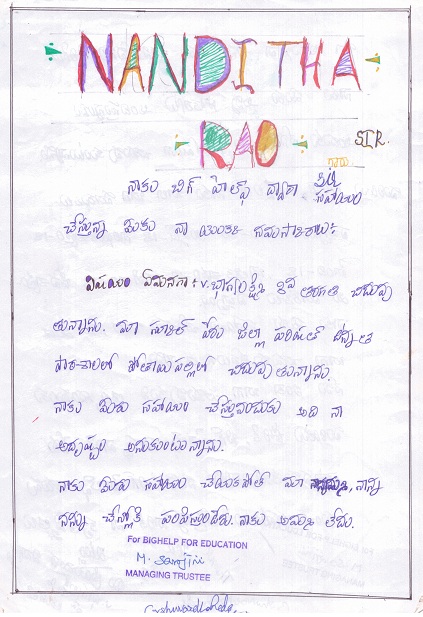 NANDITHA
RAO SIR.
గారు
నాకు బిగ్ హెల్ప్ ద్వారా సహాయం
చేస్తున్నా మీకు నా యొక్క నమస్కారాలు:
విషయం ఏమనగా: v. భాగ్యలక్ష్మి 8వ తరగతి చదువు
తున్నాను. మా స్కూల్ పేరు జిల్లా పరిషత్ ఉన్నత
పాఠశాలలో చదువుతున్నాను.
నాకు మీరు సహాయం చేస్తునందుకు అది నా
అదృష్టం అనుకుంటున్నాను.
నాకు మీరు సహాయం చేయకపోతే మా నాన్న
నన్ను పంపిస్తుండేను. నాకు అమ్మ లేదు.
For BIGHELP FOR EDUCATION
M. Sanjini
MANAGING TRUSTEE